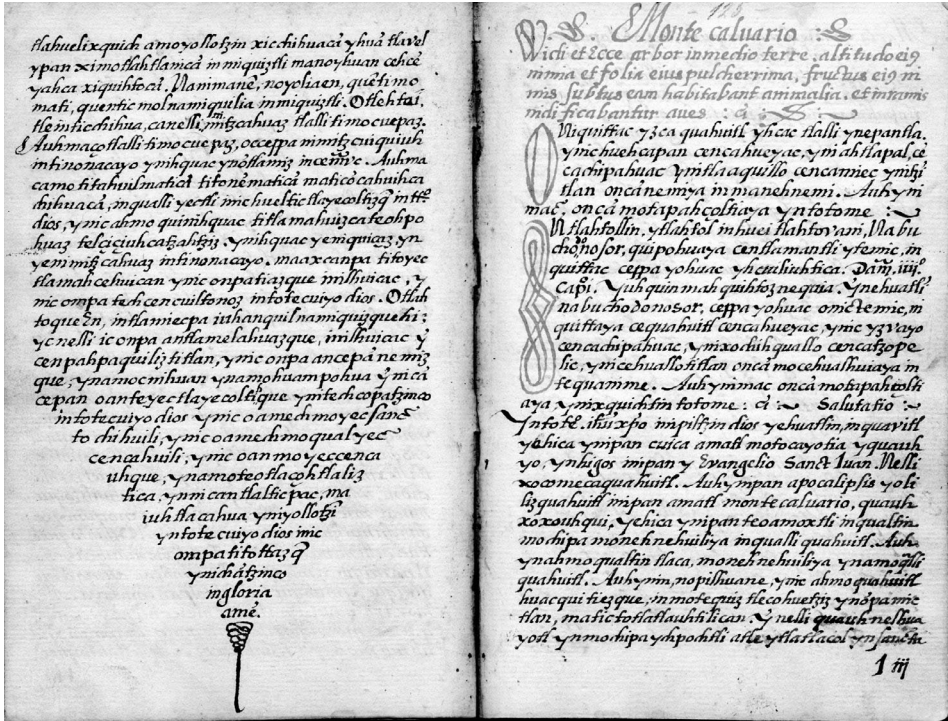 tlahuelixquich amoyollotzin xicchihuacã yhuã tlavel
ypan ximotlahtlanicã inmiquiztli manoyhuan cehcẽ
yahca xiquihtocã. Nanimanẽ, noyoliaen, quẽtimo
mati, quenticmolnamiquilia inmiquiztli. Otlehtai,
tleinticchihua, canelli nimitzcahuaz tlalli timocuepaz.
Auhmaçotlallitimocuepaz, occeppa nimitzcuiquiuh
intinonacayo
camo titahuilmaticã titonẽmaticã maticõcahuihca
chihuacã, inqualli yectli
dios, ynicahmo quinihquac titlamahuizcateohpo
huaz telçiciuhcatzahtziz. ynihquac yenquiçaz yn
yenimitzcahuaz intinonacayo. maaxcanpa titoyec
tlamahcehuican ynic onpatiazque inilhuicac, y
nic ompa tedicencuiltonoz intotecuiyo dios. Otlah
toqueẽn, intlamiecpa iuhanquilnamiquizquehi:
yc nelli ic onpa antlamelahuazque, inilhuicac y
cenpahpaquiliztitlan, ynic onpa ancepãnemiz
que, ynamocnihuan ynamohuampohua ỹnicã
cepan oanteyectlayecoltique yn
intotecuiyo dios ynic oamedimoyec
to chihuili, ynic oamedimoqualyec
cencahuili, ynic oanmoyeccenca
uhque, ynamoteotlaçohtlaliz
tica, ynnican tlalticpac, ma
iuhtlacahua yniyollotzi
yntotecuiyo dios inic
ompa titottazq̃
ynichãtzinco
ingloria
amẽ.
Monte calvario
Vidi et Ecce arbor inmedio terre, altitudo ei9
nimia et folia eius pulcherrima, fructus ei9 ni
mis subtus eam habitabant animalia. et in ramis
nidificabantur aues
Oniquittac yzca quahuitl yhcac tlalli ynepantla.
ynic huehcapan cencahueyac, yniahtlapal, cẽ
cachipahuac ynitlaaquillo cencamiec ynitzi
tlan oncãnemiya inmanehnemi. Auhyni
mac, oncã motapahçoltiaya yntotome
Intlahtollin, ytlahtol inhuei tlahtovani, Nabu
chodonosor, quipohuaya centlamantli ytemic, in
quittac ceppa yohuac yhcuiuhtica. Dañ. iiii.
Capi. Yuhquinmah quihtoznequia. Ynehuatl
nabuchodonosor, ceppa yohuac onictemic, in
quittaya cequahuitl cencahueyac, ynic yzvayo
cencachipahuac, ynixochiquallo cencatzope
lic, ynicehuallotitlan oncã mocehualhuiaya in
tequanime. Auhynimac oncã motapahçolti
aya ynixquichtin totome. Salutatio
Yntotẽ. ihũ xp̃o inipiltzin dios yehuatlin, inquavitl
yehica ynipan cuica amatl motocayotia yquauh
yo, ynhigos inipan y Evangelio Sanct Juan. Nelli
xocomecaquahuitl. Auhympan apocalipsis yoli
lizquahuitl inipan amatl monte calvario, quauh
xoxouhqui, yehica ynipan teoamoxtli inqualtin
mochipa monehnehuiliya inqualli quahuitl. Auh
ynahmo qualtin tlaca, monehnehuiliya ynamoq̃lli
quahuitl. Auhynin, nopilhuane, ynic ahmo quahuitl
huacqui tiezque, inmotequiz tlecohuetziz ynõpa mic
tlan, matictotlatlauhtilican. Ynelli quauhnelhua
yotl ynmochipa ychpochtli atle ytlatlacol ynsancta
1 iij